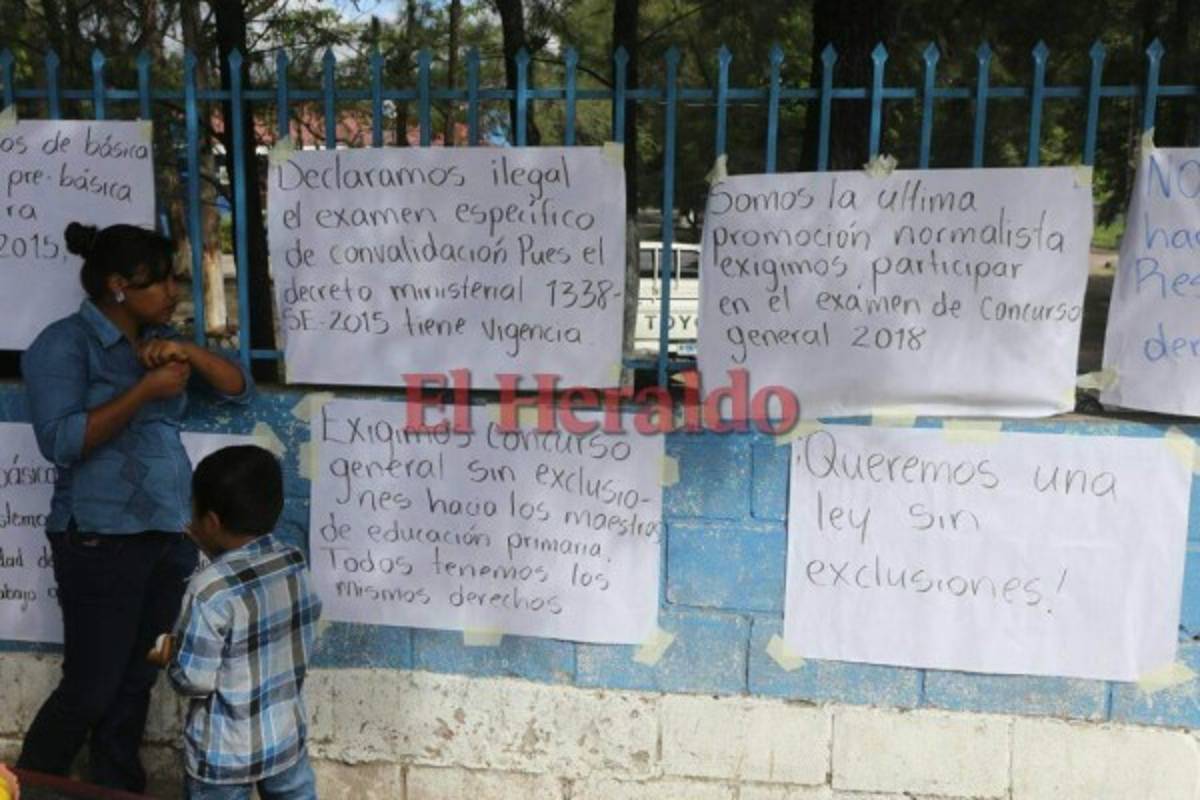 os de básica
pre-básica
ra
2015,
Declaramos ilegal
el examen específico
de convalidación Pues el
decreto ministerial 1338-
SE-2015 tiene vigencia
Somos la ultima
promoción normalista
exigimos participar
en el exámen de concurso
general 2018
NO
has
Res
der
TOYO
El Heraldo
básica
stema
dad de
abajo
Exigimos concurso
general sin exclusio-
nes hacia los maestros
de educación primaria.
Todos tenemos los
mismos derechos
¡Queremos una
ley sin
exclusiones!